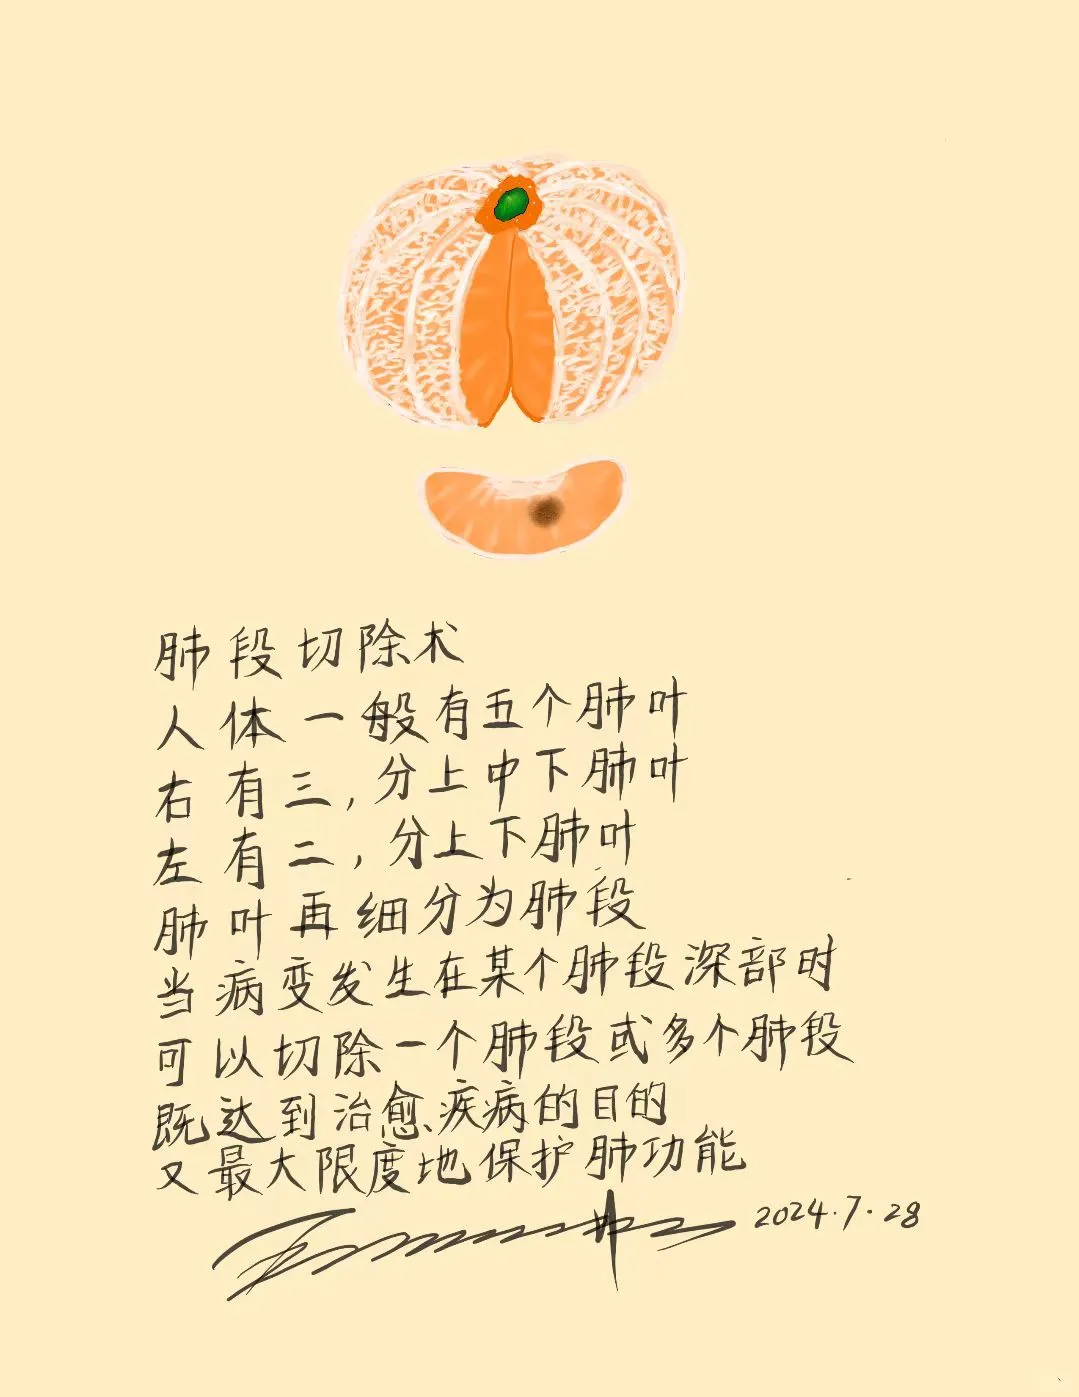 肺段切除术
人体一般有五个肺叶
右有三,分上中下肺叶
左有二,分上下肺叶
肺叶再细分为肺段
当病变发生在某个肺段深部时
可以切除一个肺段或多个肺段
既达到治愈疾病的目的
又最大限度地保护肺功能
2024.7.28